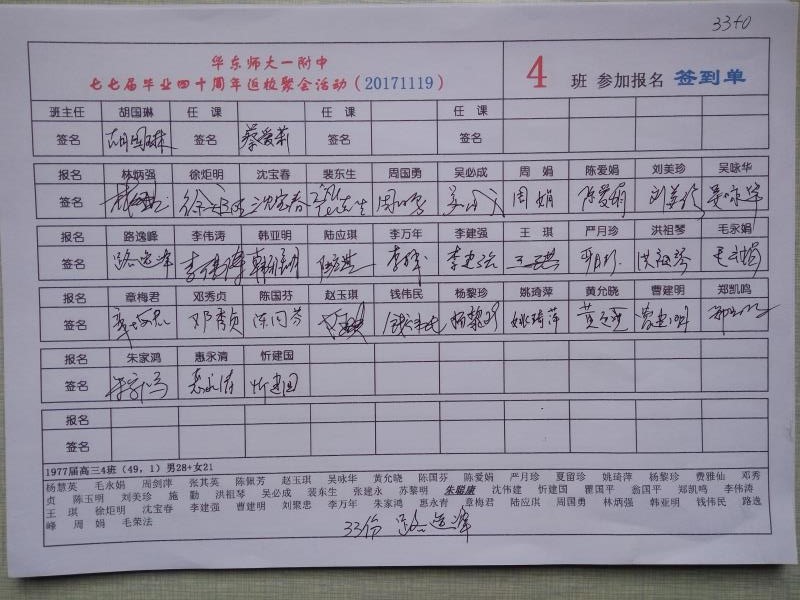 33+0
华东师大一附中
七七届毕业四十周年返校聚会活动（20171119）
4 班 参加报名 签到单
班主任 胡国琳 任 课 任 课 任 课
签名 胡国琳 签名 蔡爱莉 签名 签名
报名 林炳强 徐炬明 沈宝春 裴东生 周国勇 吴必成 周 娟 陈爱娟 刘美珍 吴咏华
签名 林炳强 徐炬明 沈宝春 裴东生 周国勇 吴必成 周娟 陈爱娟 刘美珍 吴咏华
报名 路逸峰 李伟涛 韩亚明 陆应琪 李万年 李建强 王 琪 严月珍 洪祖琴 毛永娟
签名 路逸峰 李伟涛 韩亚明 陆应琪 李万年 李建强 王琪 严月珍 洪祖琴 毛永娟
报名 章梅君 邓秀贞 陈国芬 赵玉琪 钱伟民 杨黎珍 姚琦萍 黄允晓 曹建明 郑凯鸣
签名 章梅君 邓秀贞 陈国芬 赵玉琪 钱伟民 杨黎珍 姚琦萍 黄允晓 曹建明 郑凯鸣
报名 朱家鸿 惠永清 忻建国
签名 朱家鸿 惠永清 忻建国
报名
签名
1977届高三4班（49，1）男28+女21
杨慧英 毛永娟 周剑萍 张其英 陈佩芳 赵玉琪 吴咏华 黄允晓 陈国芬 陈爱娟 严月珍 夏留珍 姚琦萍 杨黎珍 费雅仙 邓秀
贞 陈玉明 刘美珍 施 勤 洪祖琴 吴必成 裴东生 张建永 苏黎明 朱聪康 沈伟建 忻建国 瞿国平 翁国平 郑凯鸣 李伟涛
王 琪 徐炬明 沈宝春 李建强 曹建明 刘聚忠 李万年 朱家鸿 惠永青 章梅君 陆应琪 周国勇 林炳强 韩亚明 钱伟民 路逸
峰 周 娟 毛荣法
33份 路逸峰